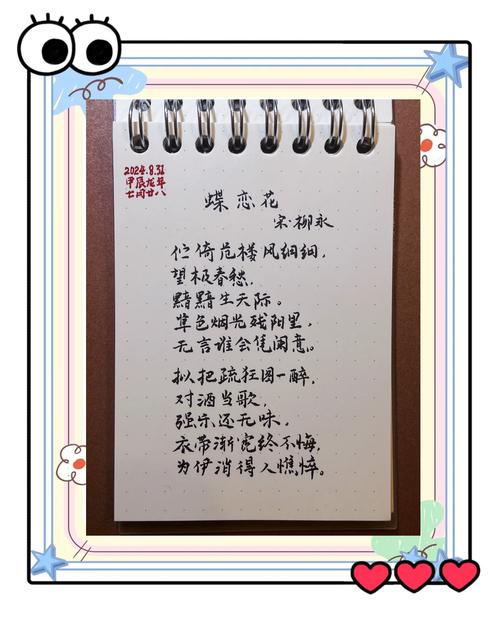 2024.8.31
甲辰龙年
七月廿八
蝶恋花
宋·柳永
伫倚危楼风细细，
望极春愁，
黯黯生天际。
草色烟光残阳里，
无言谁会凭阑意。
拟把疏狂图一醉，
对酒当歌，
强乐还无味，
衣带渐宽终不悔，
为伊消得人憔悴。